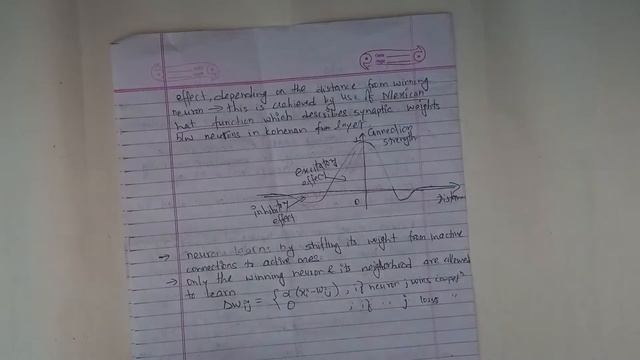 effect, depending on the distance from winning
neuron → this is achieved by use of Mexican
hat function which describes synaptic weights
b/w neurons in Kohenan layer
Connection
strength
excitatory
effect
inhibitory
effect
0
Distance
→ neurons learn by shifting its weight from inactive
connections to active ones.
→ only the winning neuron & its neighorhood are allowed
to learn
Δwij = { α(xi - wij) , if neuron j wins compet^n
0 ; if " j loses "